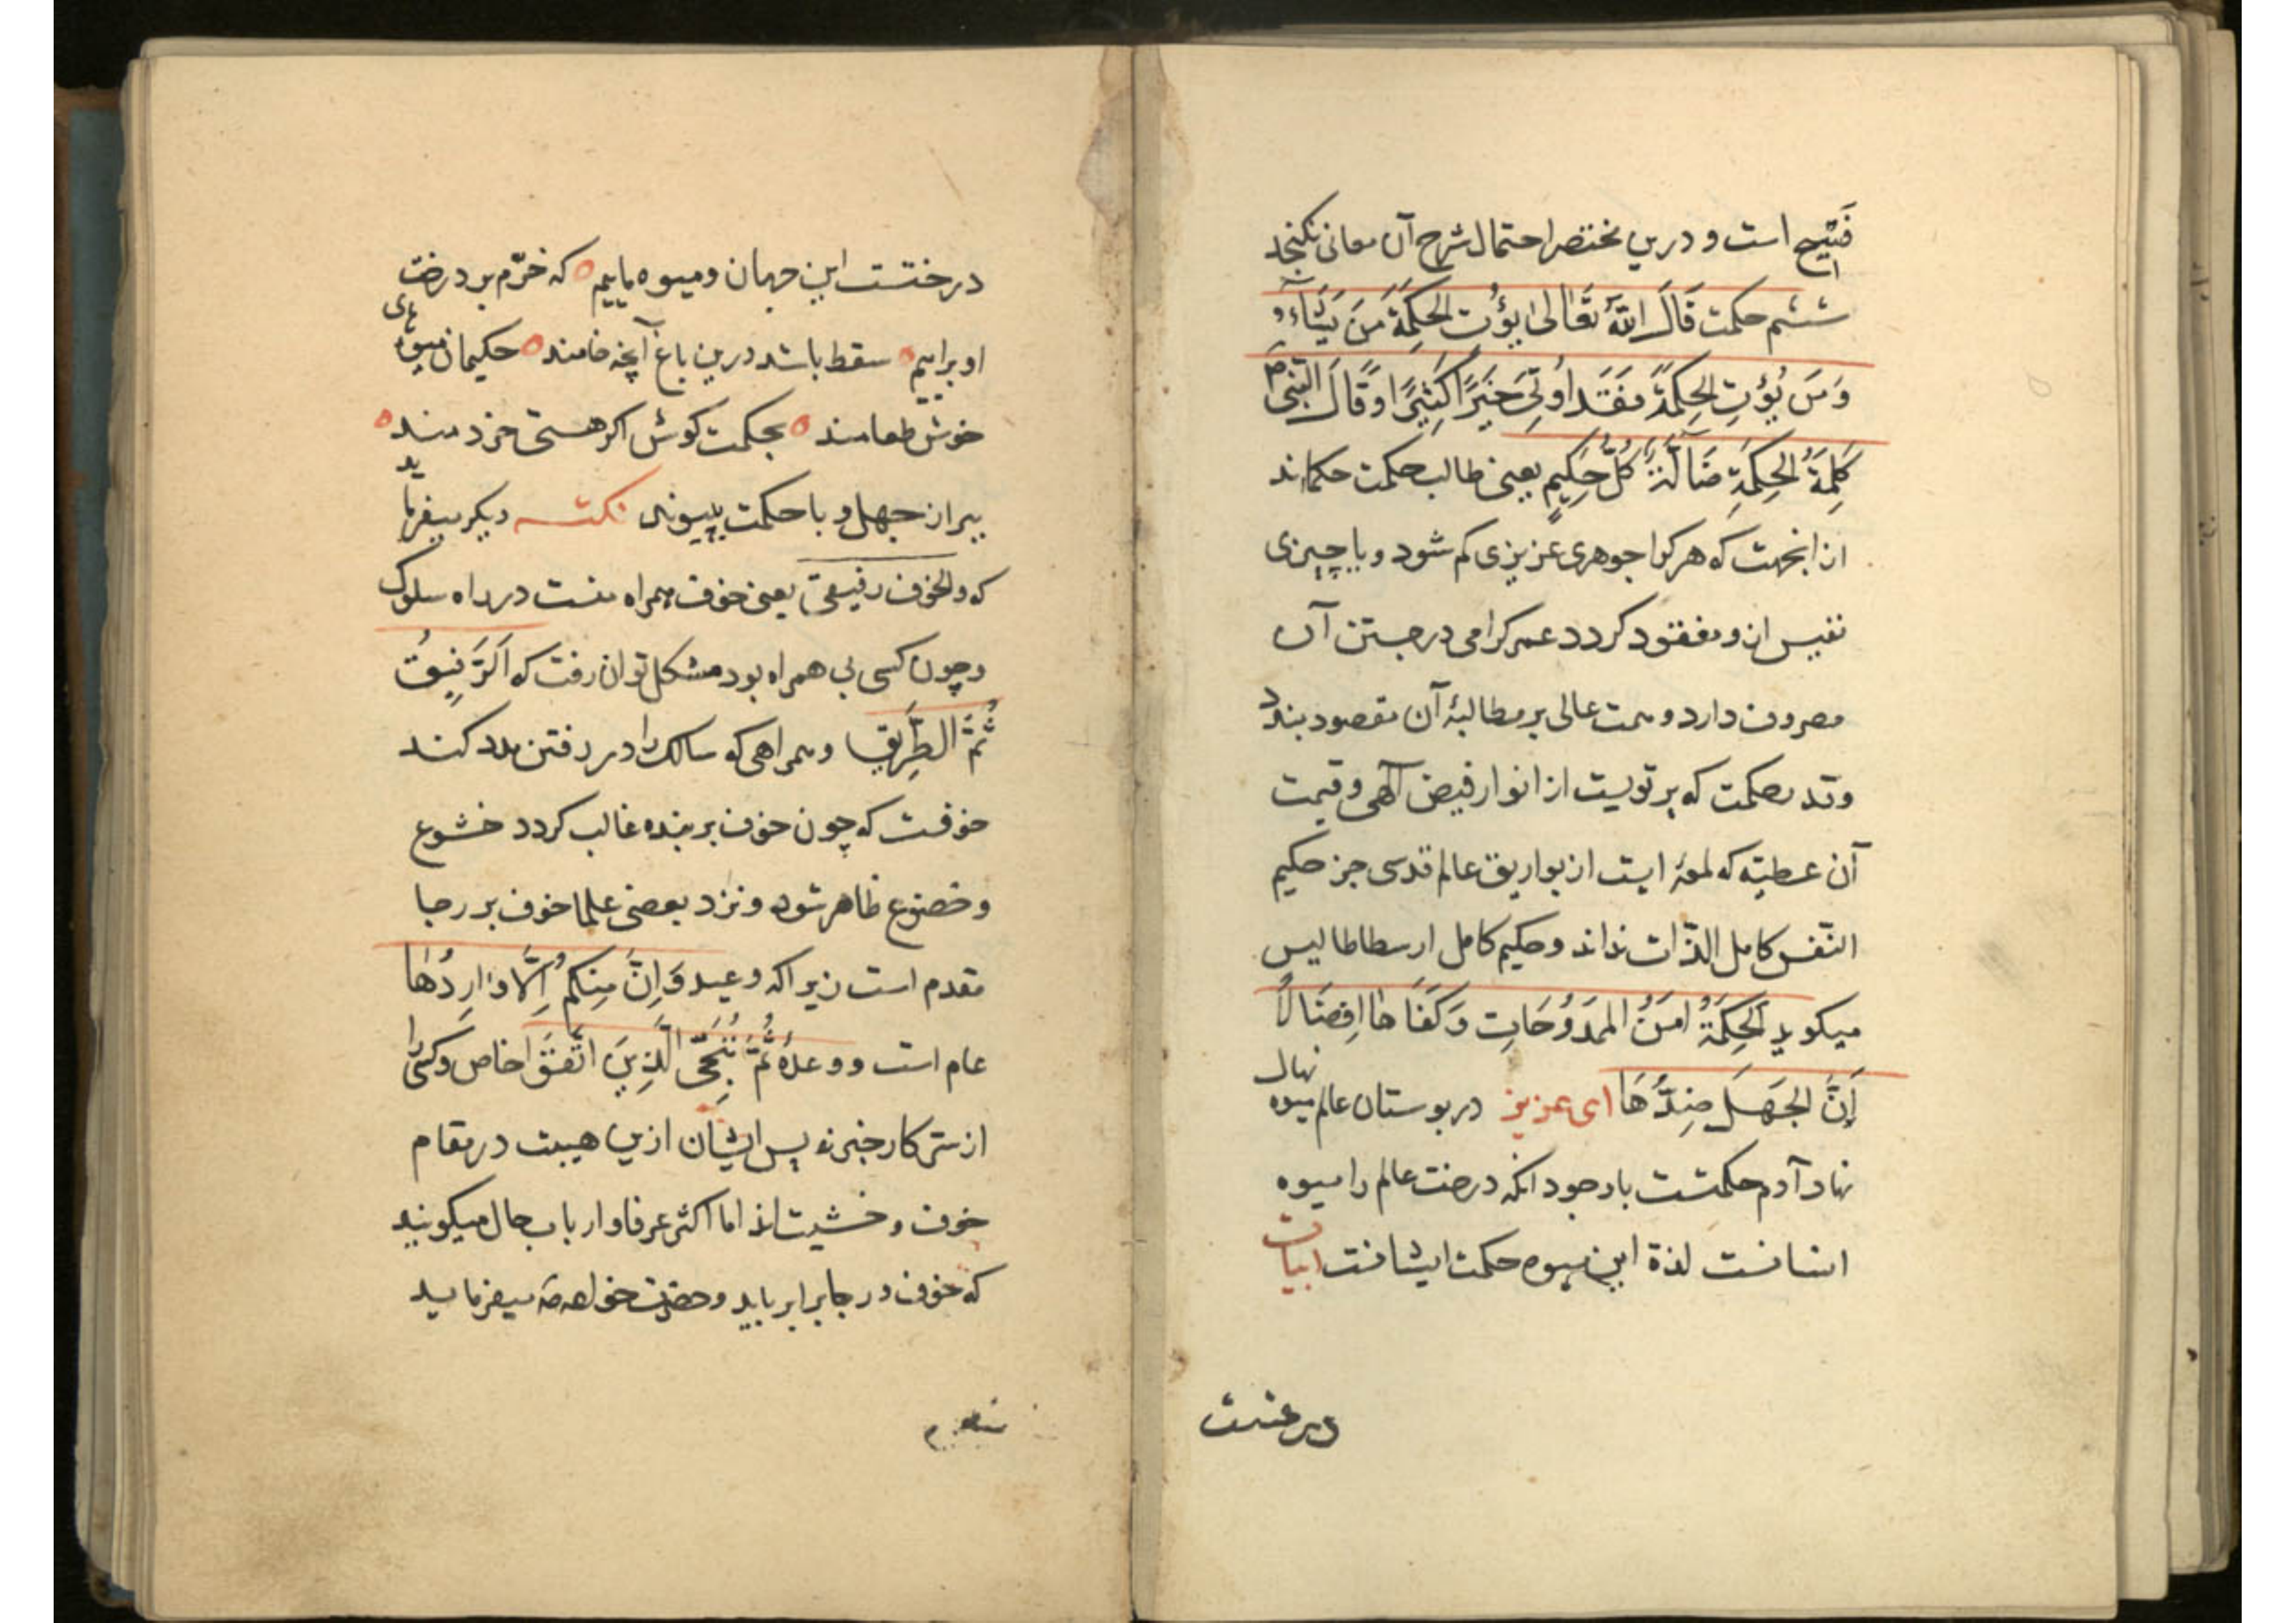 فتیح است و درین مختصر احتمال شرح آن معانی نکنجد
ششم حکمت قَالَ اللّٰهُ تَعَالٰی یُؤْتِ الْحِکْمَةَ مَنْ یَشَآءُ
وَمَنْ یُؤْتِ الْحِکْمَةَ فَقَدْ اُوتِیَ خَیْرًا کَثِیرًا وَقَالَ النَّبِیُّ
کَلِمَةُ الْحِکْمَةِ ضَآلَّةُ کُلِّ حَکِیمٍ یعنی طالب حکمت حکمااند
ازانجهت که هرکرا جوهری عزیزی کم شود و یا چیزی
نفیس ازو مفقود کردد عمر کرامی در جستن آن
مصروف دارد و همت عالی بر مطالبهٔ آن مقصود بندد
و قدر حکمت که پرتویست از انوار فیض آلهی و قیمت
آن عطیّه که لمعهٔ ایست از بواریق عالم قدسی جز حکیم
النّفس کامل الذّات نداند و حکیم کامل ارسطاطالیس
میکوید اَلْحِکْمَةُ اُمُّ الْمَمْدُوحَاتِ وَکَفَاهَا اِفْضَالًا
اِنَّ الْجَهْلَ ضِدُّهَا ای عزیز در بوستان عالم میوه نهال
نهاد آدم حکمتست باوجود انکه درخت عالم را میوه
انسانست لذة این میوه حکمت ایشانست ابیات
درختست
درختست این جهان و میوه ماییم که خرّم بر درخت
او براییم سقط باشد درین باغ آنچه خامند حکیمان میوهای
خوش طعامند بحکمت کوش اکر هستی خردمند
ببر از جهل و با حکمت بپیوند نکته دیکر میفرماید
که والخوف رفیقی یعنی خوف همراه منست در راه سلوک
و چون کسی بی همراه بود مشکل توان رفت که اَلرَّفِیقُ
ثُمَّ الطَّرِیق و همراهی که سالک را در رفتن مدد کند
خوفست که چون خوف بر بنده غالب کردد خشوع
و خضوع ظاهر شود و نزد بعضی علما خوف بر رجا
مقدم است زیراکه وعید وَاِنْ مِنْکُمْ اِلَّا وَارِدُهَا
عام است و وعدهٔ ثُمَّ نُنَجِّی الَّذِینَ اتَّقَوْا خاص و کسی را
از سرّ کار خبر نه پس ایشان ازین هیبت در مقام
خوف و خشیت‌اند اما اکثر عرفا و ارباب حال میکویند
که خوف و رجا برابر باید و حضرت خواجه میفرماید